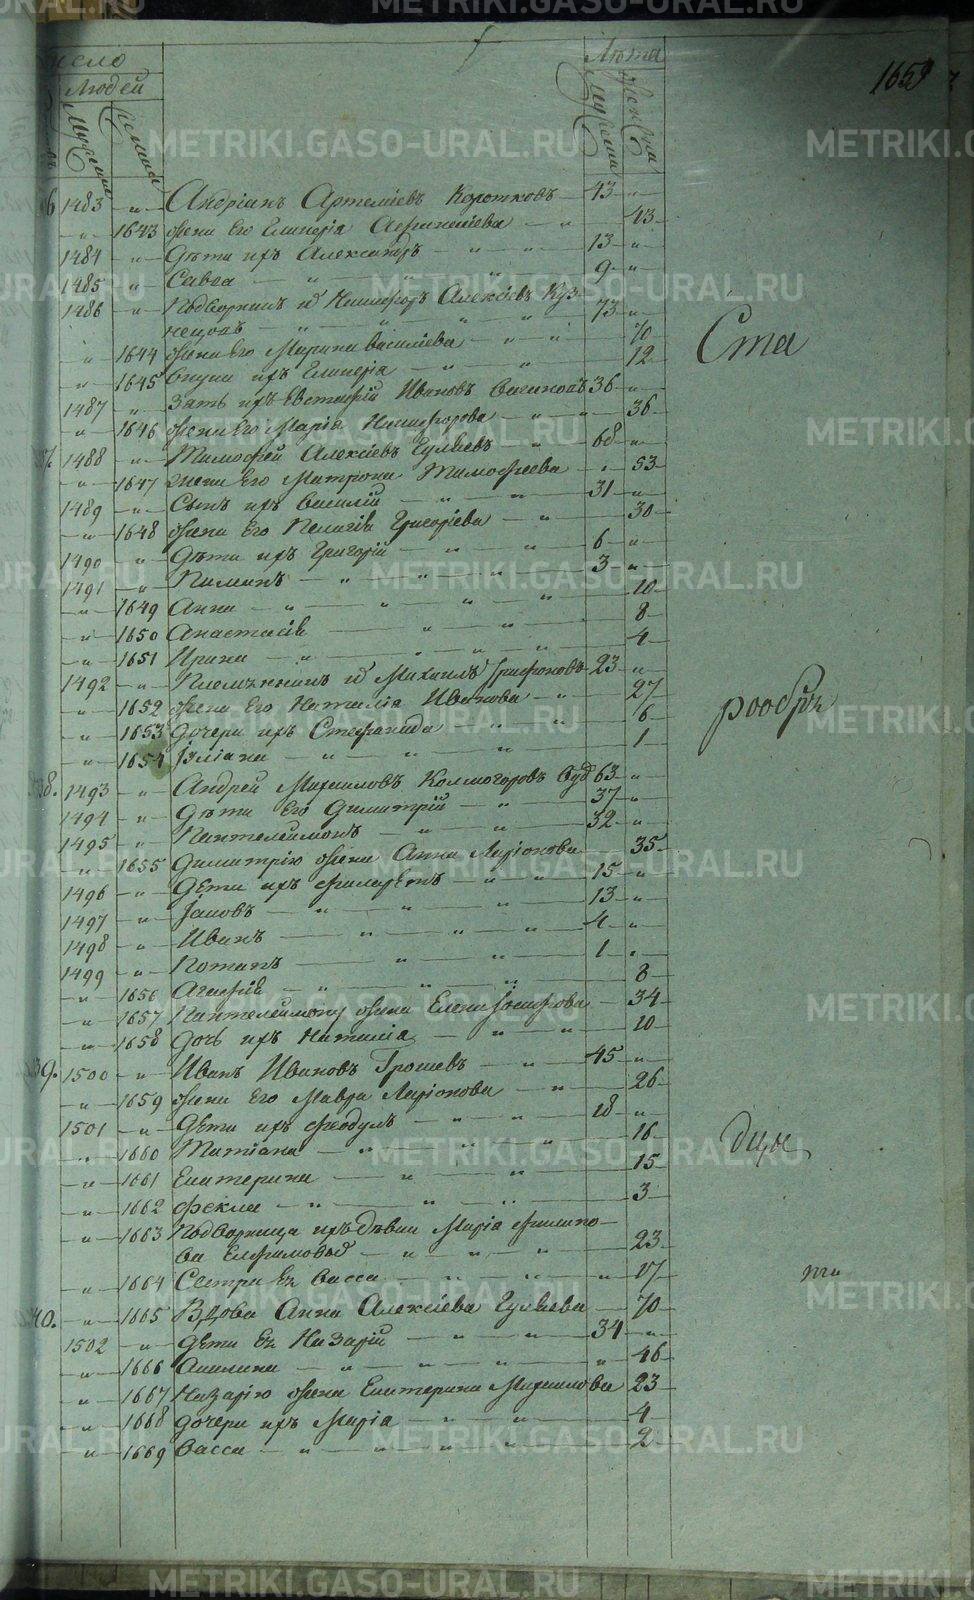 число
Людей
Лѣта
мужеска
женска
мужеска
женска
1659
1483 " Андріанъ Артеміевъ Коротковъ 43 "
" 1643 жена Его Гликерія Афанасіева " 43
1484 " Дѣти ихъ Александръ 13 "
1485 " Савва 9 "
1486 " Подворникъ Никифоръ Алексіевъ Куз-
нецовъ 73 "
" 1644 жена Его Марина Василіева 70
" 1645 внука ихъ Гликерія 12
1487 " Зять ихъ Евстафій Ивановъ 36 "
" 1646 жена Его Марія Никифорова 36
Ста
37. 1488 " Тимофей Алексіевъ Гуляевъ 68 "
" 1647 жена Его Матрона Тимофеева 53
1489 " Сынъ ихъ Василій 31 "
" 1648 жена Его Пелагія Григоріева 30
1490 " Дѣти ихъ Григорій 6 "
1491 " Пименъ 3 "
" 1649 Анна 10
" 1650 Анастасія 8
" 1651 Ирина 4
1492 " Племянникъ Михаилъ Трифоновъ 23 "
" 1652 жена Его Наталія Иванова 27
" 1653 дочери ихъ Стефанида 6
" 1654 Іуліана 1
38. 1493 " Андрей Михаиловъ Колмогоровъ вдъ 63 "
1494 " Дѣти Его Димитрій 37 "
1495 " Пантелеимонъ 32 "
" 1655 Димитрію жена Анна Ларіонова 35
1496 " Дѣти ихъ Филаретъ 15 "
1497 " Іаковъ 13 "
1498 " Иванъ 4 "
1499 " Потапъ 1 "
" 1656 Агафія 8
" 1657 Пантелеимону жена Елена Іосифова 34
" 1658 дочь ихъ Наталія 10
39. 1500 " Иванъ Ивановъ Грошевъ 45 "
" 1659 жена Его Мавра Ларіонова 26
1501 " Дѣти ихъ Феодулъ 18 "
" 1660 Татіана 16
" 1661 Екатерина 15
" 1662 Фекла 3
" 1663 Подворница ихъ дѣвка Марія Филипо-
ва Елфимовыхъ 23
" 1664 Сестра Ея Васса 17
40. " 1665 Вдова Анна Алексіева Гуляева 70
1502 " Дѣти Ея Назарій 34 "
" 1666 Акилина 46
" 1667 Назарію жена Екатерина Михаилова 23
" 1668 дочери ихъ Марія 4
" 1669 Васса 2
METRIKI.GASO-URAL.RU